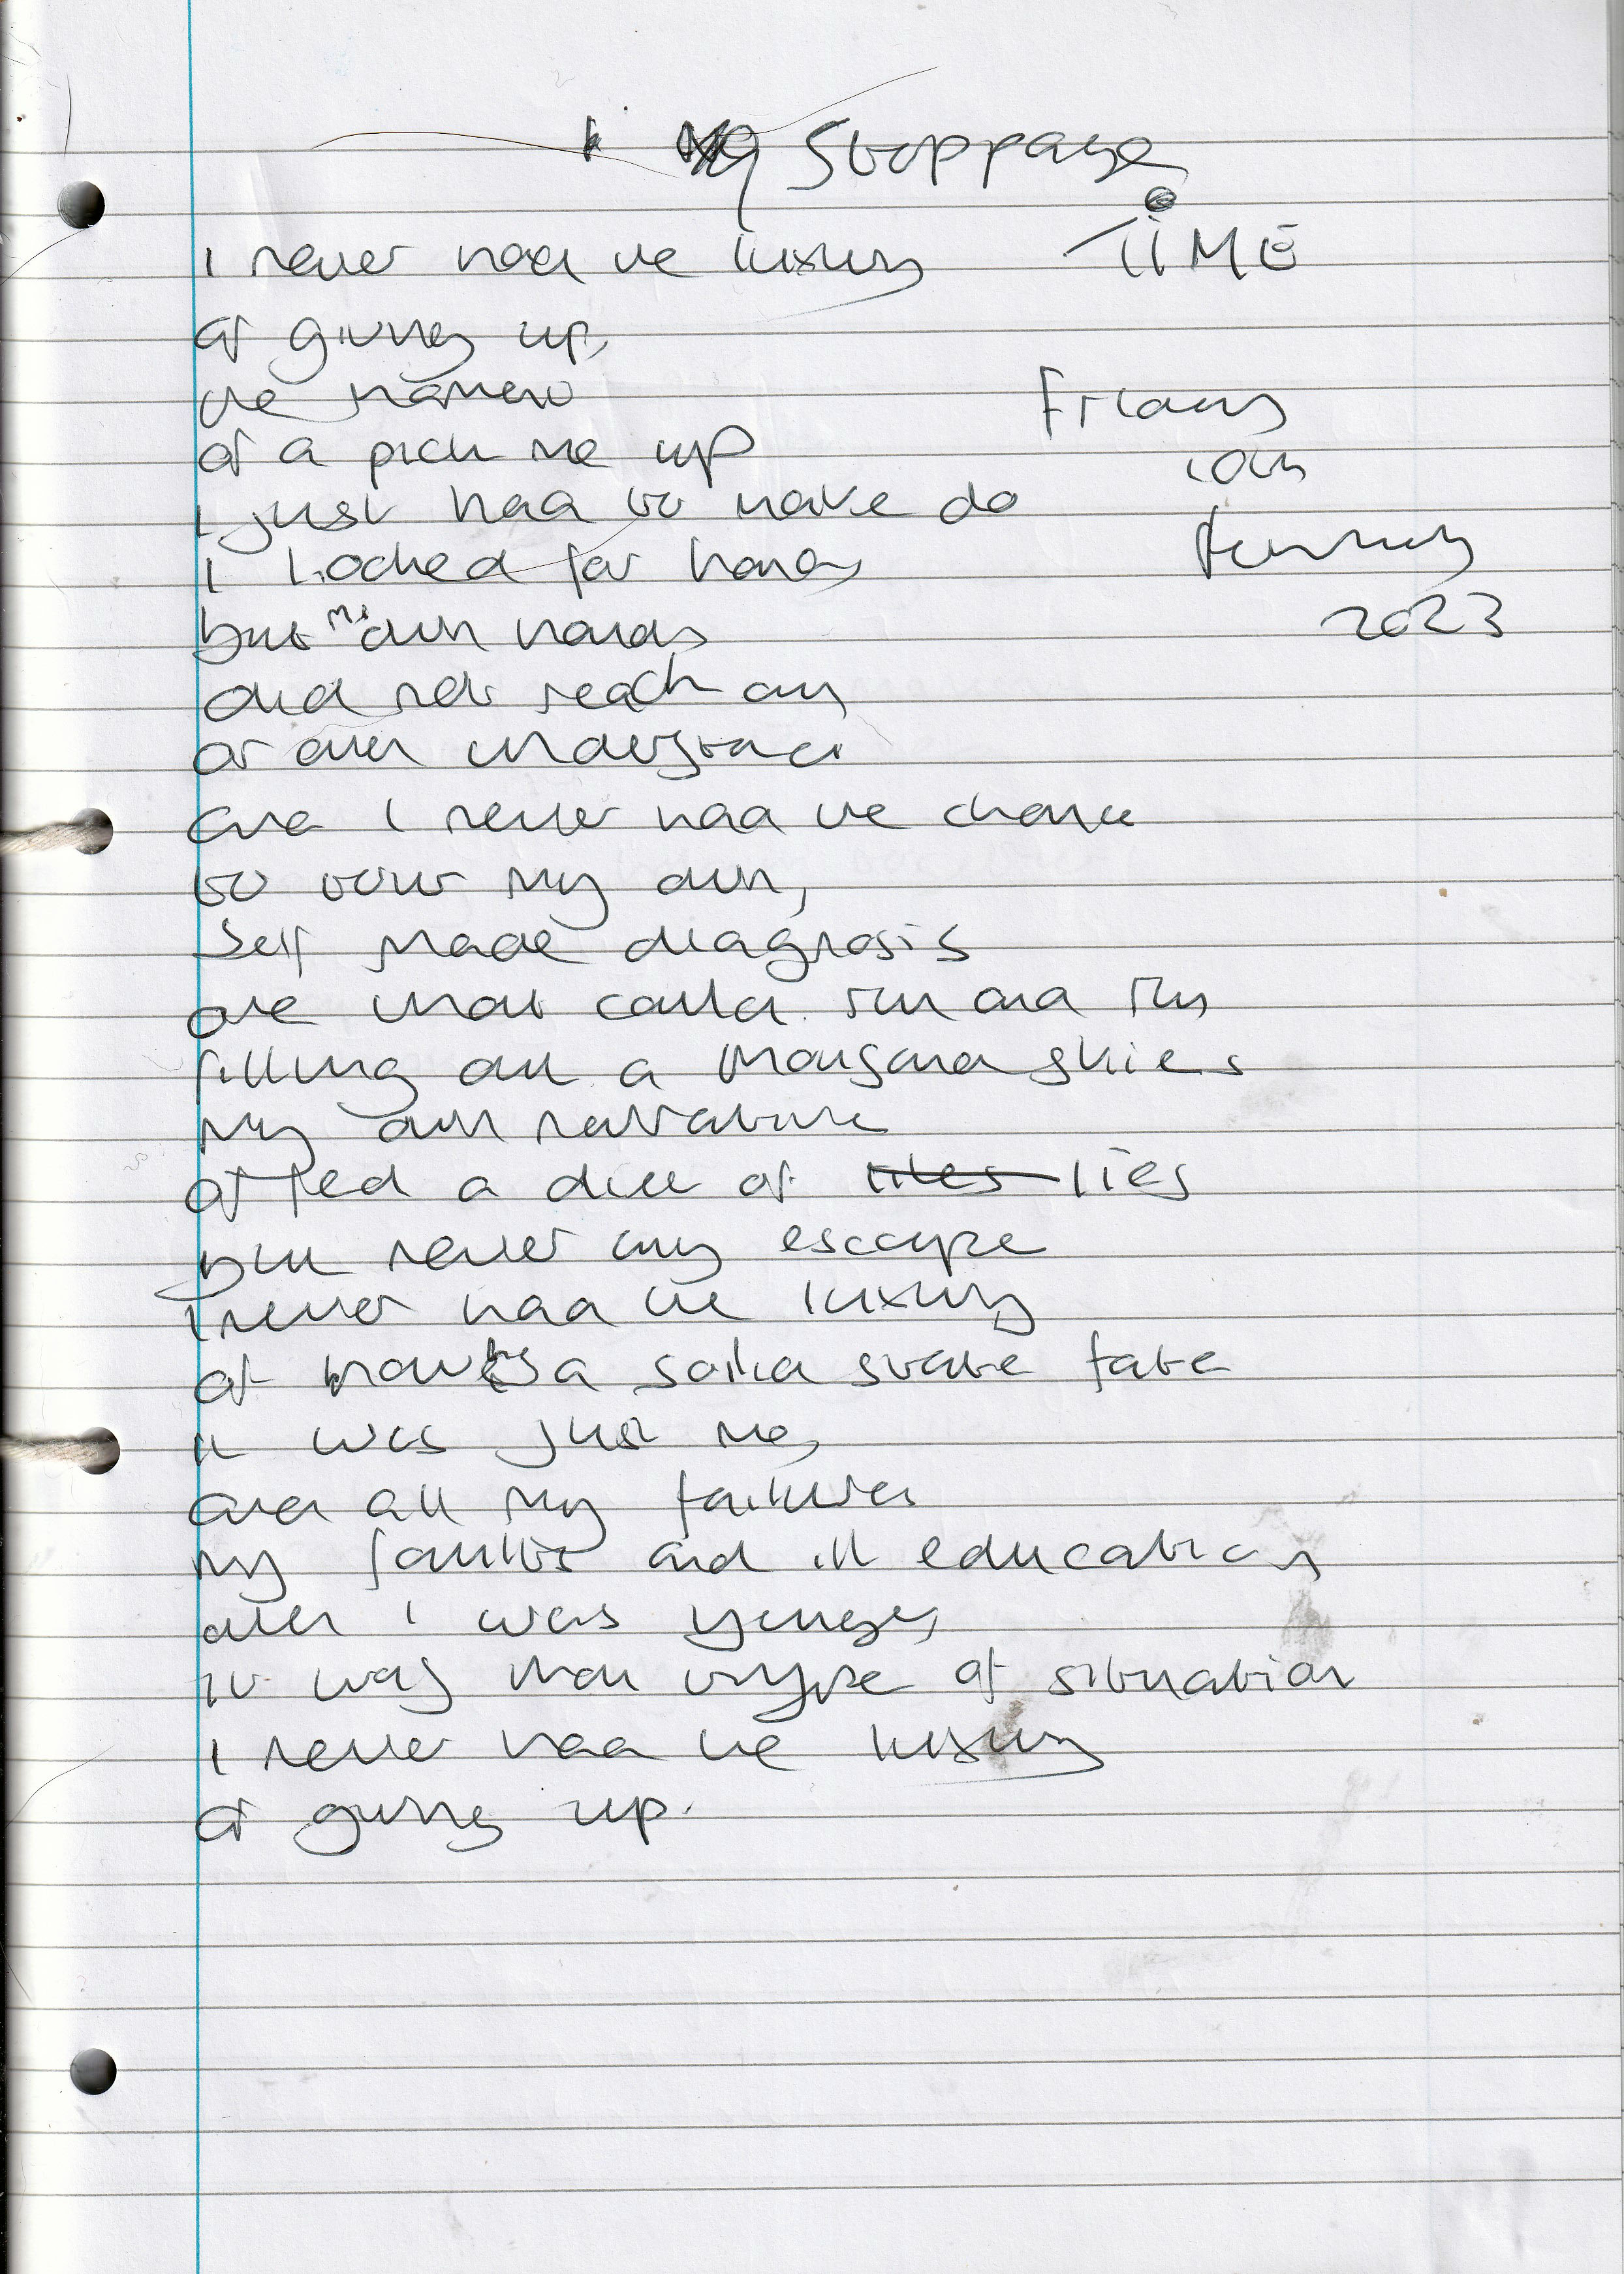 My Stoppage
TIME
I never had the luxury
of giving up,
the moment
of a pick me up
I just had to make do
I looked for hands
but my own hands
could not reach out
or even understand
and I never had the chance
to tour my own,
self made diagnosis
one that could run and fly
filling out a skies
my own narrative
of fed a diet of lies
but never any escape
I never had the luxury
of having a solid state fate
it was just me,
and all my failures
my faults and ill education
when I was younger,
it was that type of situation
I never had the luxury
of giving up.
Friday
2023